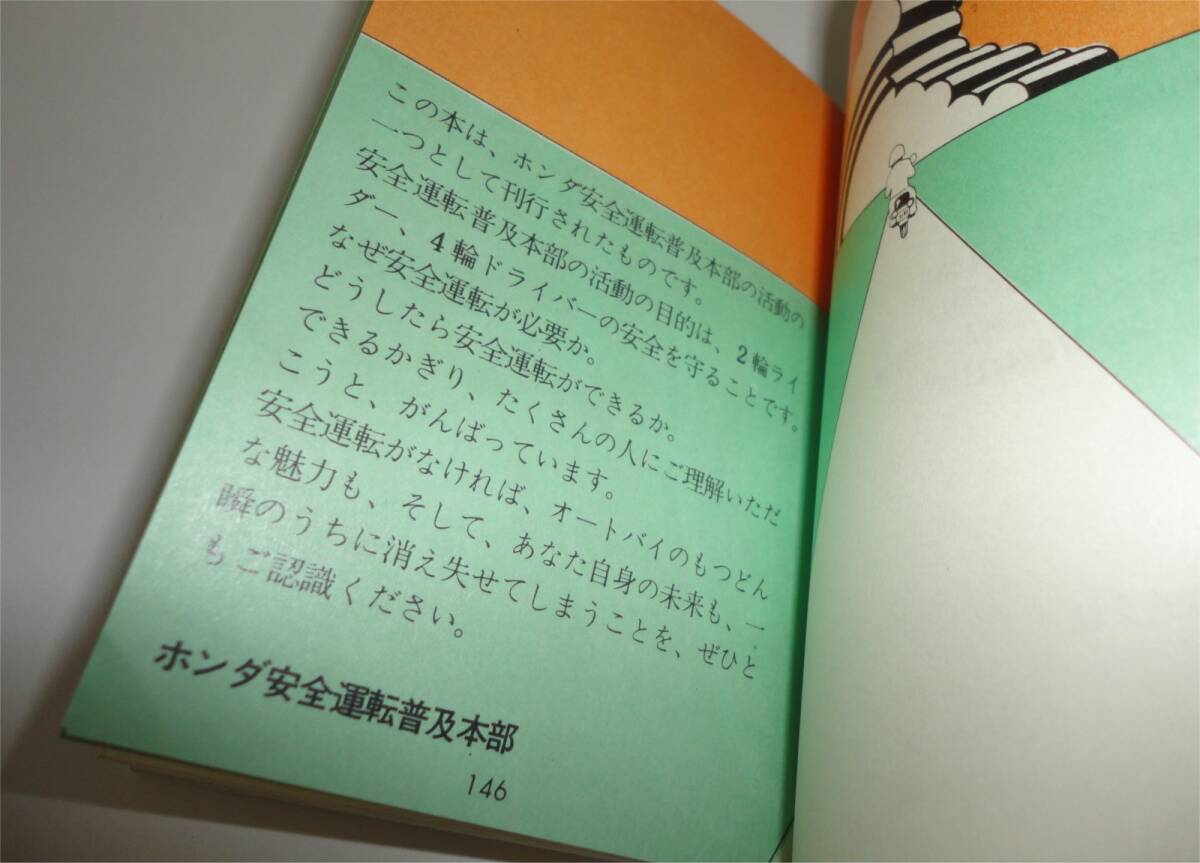 この本は、ホンダ安全運転普及本部の活動の
一つとして刊行されたものです。
安全運転普及本部の活動の目的は、2輪ライ
ダー、4輪ドライバーの安全を守ることです。
なぜ安全運転が必要か。
どうしたら安全運転ができるか。
できるかぎり、たくさんの人にご理解いただ
こうと、がんばっています。
安全運転がなければ、オートバイのもつどん
な魅力も、そして、あなた自身の未来も、一
瞬のうちに消え失せてしまうことを、ぜひと
もご認識ください。
ホンダ安全運転普及本部
146